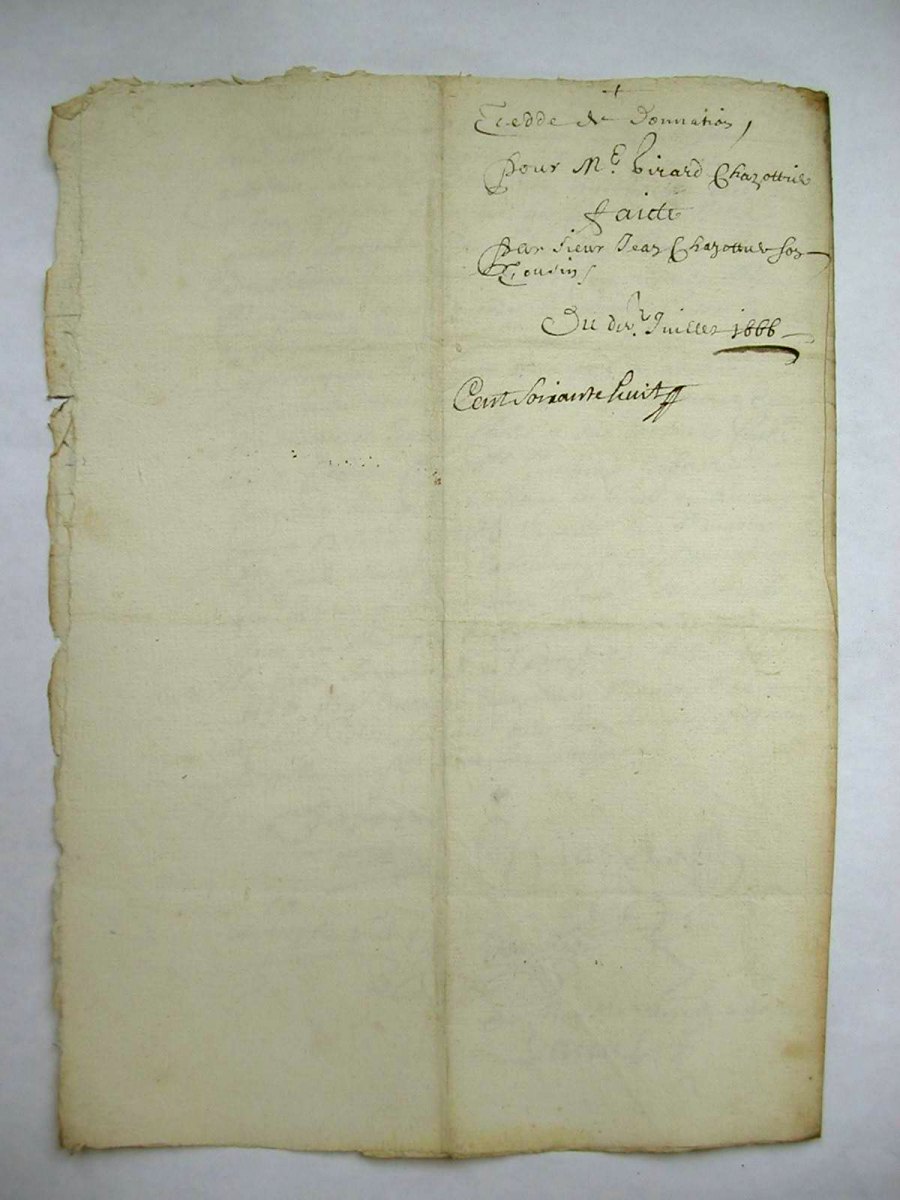 +
Cedde de Donnation,
pour M.e Girard Chazottes
faite
par sieur Jean Chazottes son
Cousin
Du dix.e Juillet 1666
Cent soixante huit